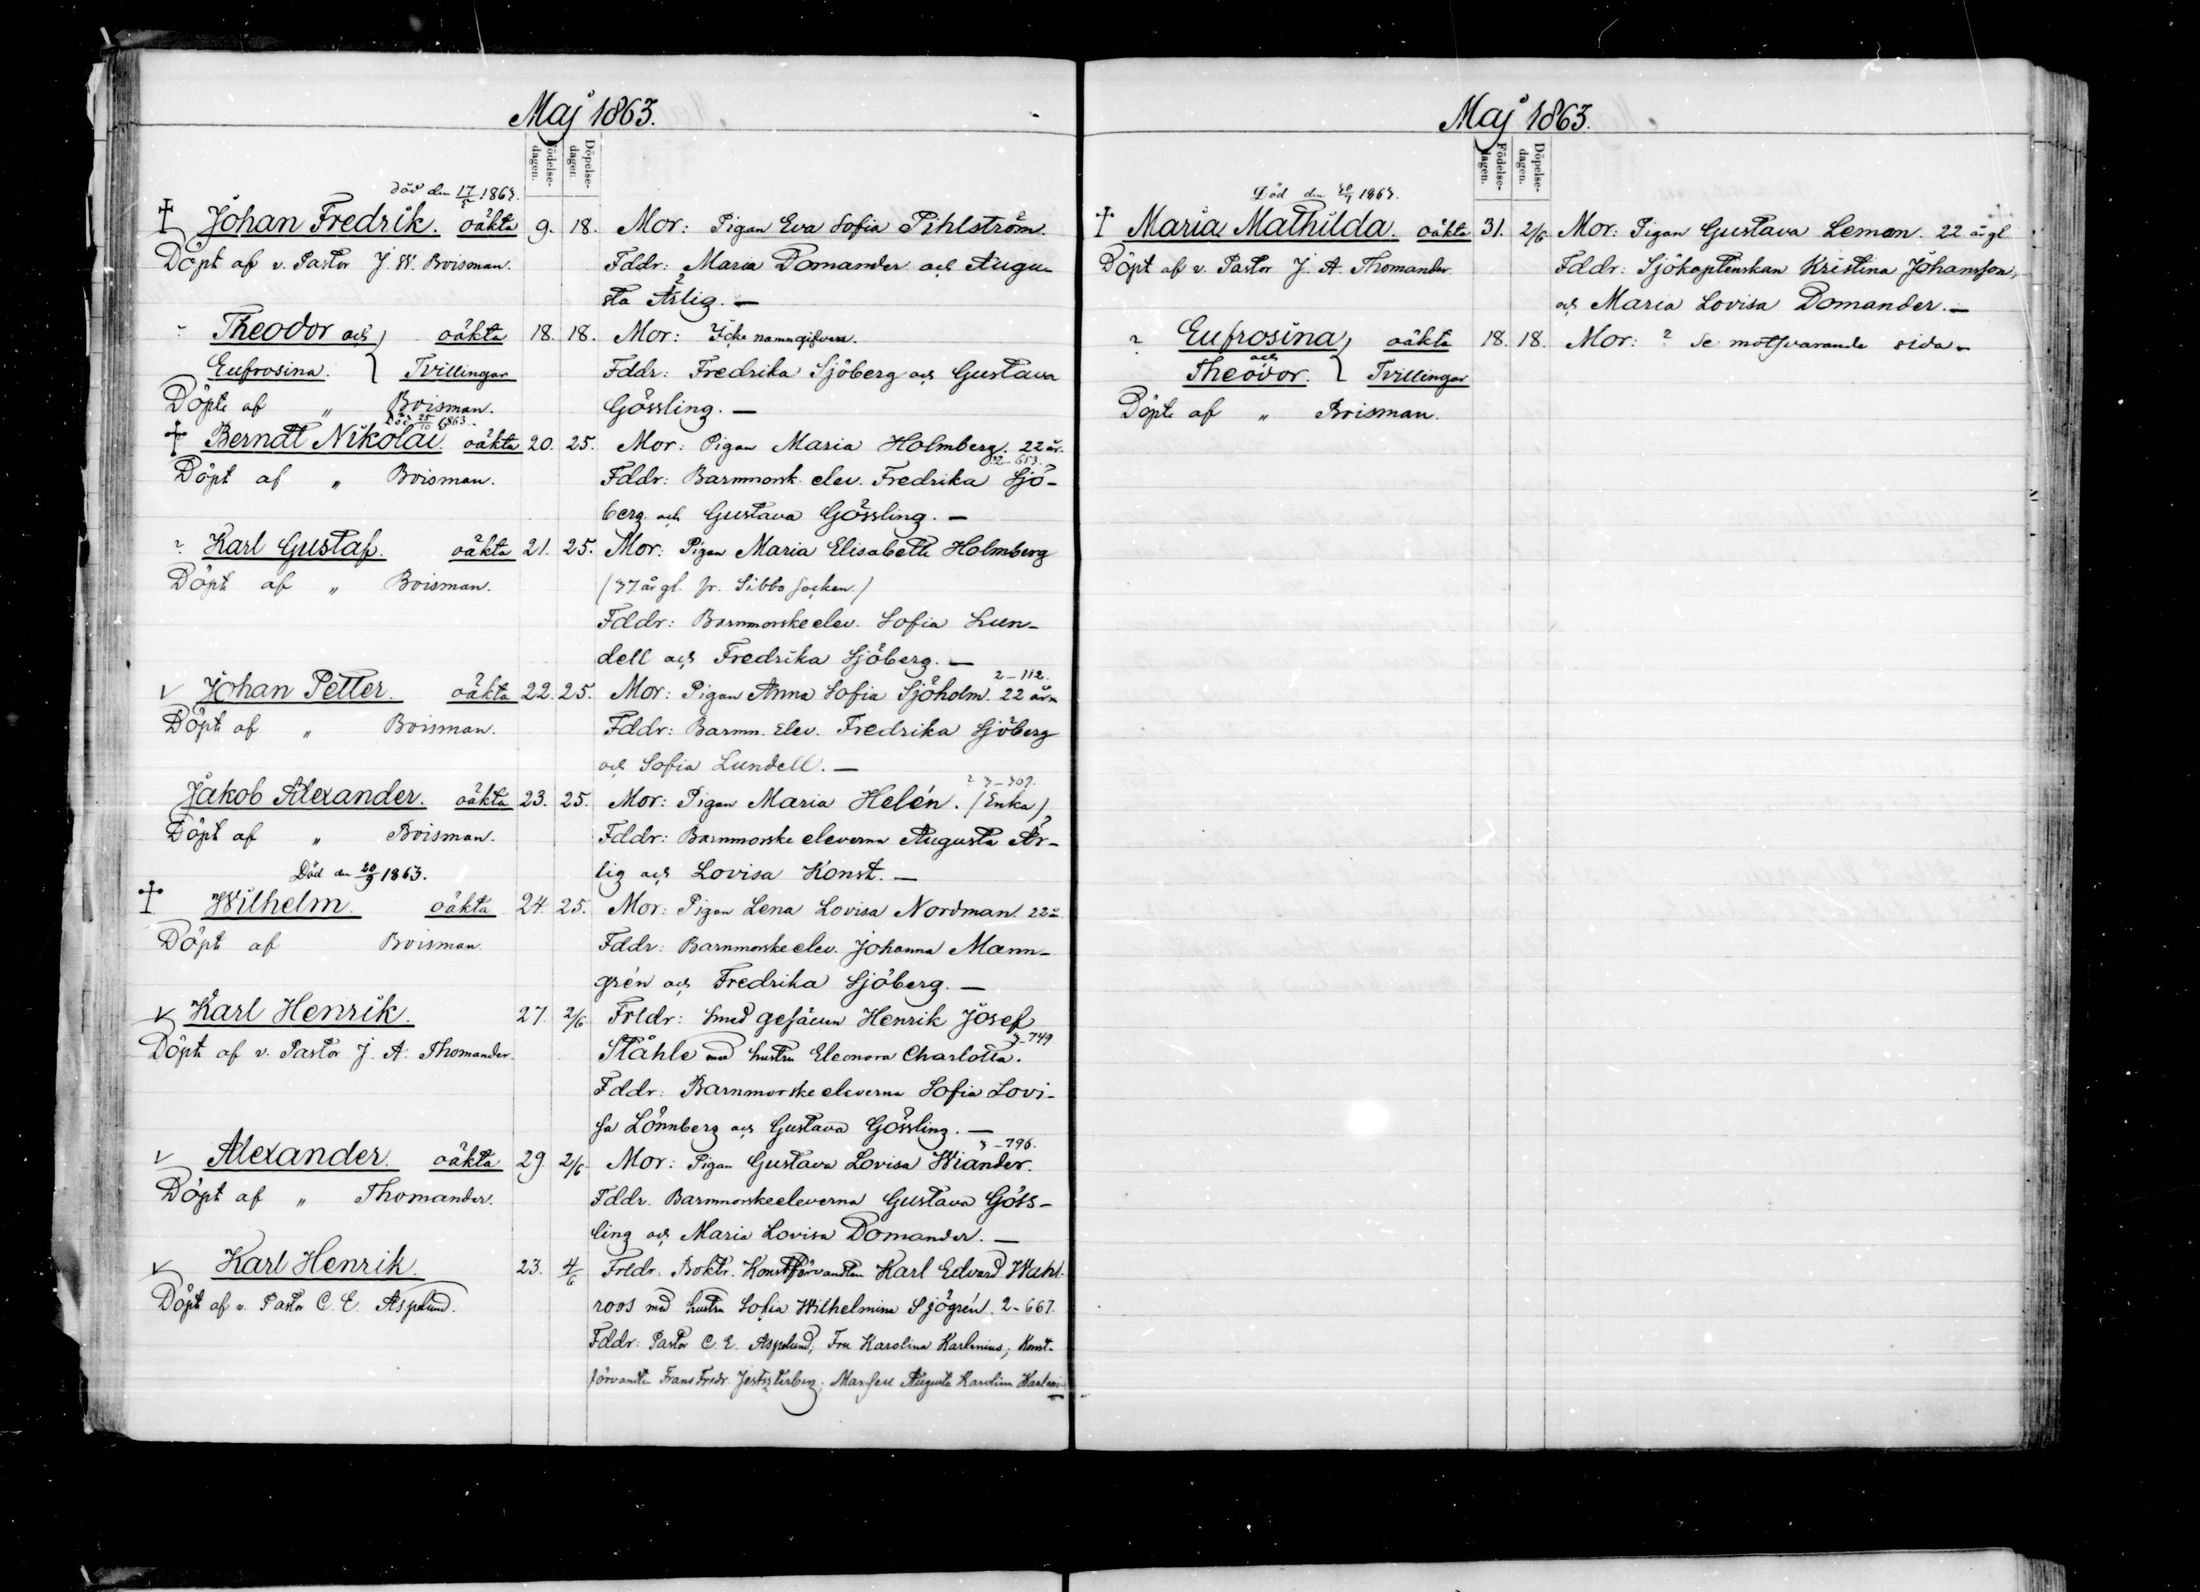 Maj 1863.
Födelse-dagen.
Döpelse-dagen.
död den 17/5 1863.
† Johan Fredrik. oäkta 9. 18. Mor: Pigan Eva Sofia Pihlström.
Döpt af v. Pastor J. W. Boisman. Fddr: Maria Domander och Augu-
sta Ärlig. —
? Theodor och oäkta 18. 18. Mor: Icke namngifven.
Eufrosina. Tvillingar Fddr: Fredrika Sjöberg och Gustava
Döpte af „ Boisman. Gössling. —
Död 25/10 1863.
† Berndt Nikolai. oäkta 20. 25. Mor: Pigan Maria Holmberg. 22 år.
2-653.
Döpt af „ Boisman. Fddr: Barnmorsk. elev. Fredrika Sjö-
berg och Gustava Gössling. —
? Karl Gustaf. oäkta 21. 25. Mor: Pigan Maria Elisabeth Holmberg
Döpt af „ Boisman. (37 år gl. fr. Sibbo socken.)
Fddr: Barnmorske elev. Sofia Lun-
dell och Fredrika Sjöberg. —
2-112.
v Johan Petter. oäkta 22. 25. Mor: Pigan Anna Sofia Sjöholm. 22 år.
Döpt af „ Boisman. Fddr: Barnm. Elev. Fredrika Sjöberg
och Sofia Lundell. —
? 3-309.
Jakob Alexander. oäkta 23. 25. Mor: Pigan Maria Helén. (Enka)
Döpt af „ Boisman. Fddr: Barnmorske eleverna Augusta Är-
Död den 20/9 1863. lig och Lovisa Konst. —
† Wilhelm. oäkta 24. 25. Mor: Pigan Lena Lovisa Nordman. 22 å
Döpt af Boisman. Fddr: Barnmorske elev. Johanna Mann-
grén och Fredrika Sjöberg. —
v Karl Henrik. 27. 2/6 Frldr: Smed gesällen Henrik Josef
3-749
Döpt af v. Pastor J. A. Thomander. Ståhle med hustru Eleonora Charlotta.
Fddr: Barnmorske eleverna Sofia Lovi-
sa Lönnberg och Gustava Gössling. —
3-796.
v Alexander. oäkta 29. 2/6 Mor: Pigan Gustava Lovisa Wiander.
Döpt af „ Thomander. Fddr. Barnmorskeeleverna Gustava Göss-
ling och Maria Lovisa Domander. —
v Karl Henrik. 23. 4/6 Frldr. Boktr. Konstförvandten Karl Edvard Wahl-
Döpt af v. Pastor C. E. Aspelund. roos med hustru Sofia Wilhelmina Sjögrén. 2-667.
Fddr: Pastor C. E. Aspelund; Fru Karolina Karlenius; Konst-
förvandten Frans Fredr. Mamsell Augusta Karolina
Maj 1863.
Födelse-dagen.
Döpelse-dagen.
Död den 1863.
† Maria Mathilda. oäkta 31. 2/6 Mor: Pigan Gustava Leman. 22 år gl.
Döpt af v. Pastor J. A. Thomander. Fddr: Sjökaptenskan Kristina Johansson,
och Maria Lovisa Domander. —
? Eufrosina oäkta 18. 18. Mor: ? Se motsvarande sida.
och
Theodor. Tvillingar
Döpte af „ Boisman.